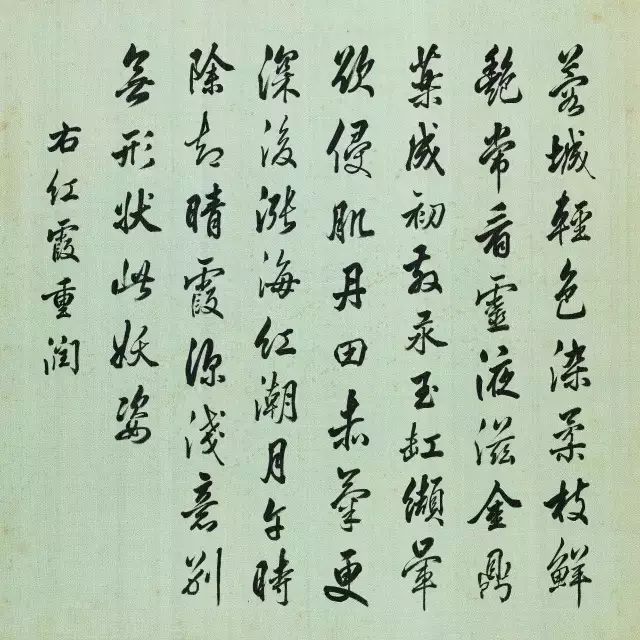 城輕色染柔枝鮮
艷常看靈液滋金鼎
藥成初汞玉缸纈暈
欲侵肌丹田赤氣更
深後漲海紅潮月午時
除却晴霞深淺意别
無形狀此妖姿
右紅霞重潤